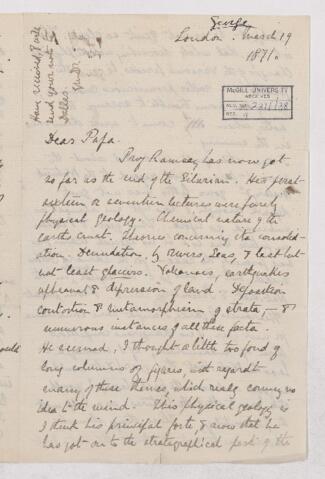 George
London. March 19
1871.
Have received, & will
send your note to
Dallas.
GMD.
McGILL UNIVERSITY
ARCHIVES
ACC. NO. 2211/38
REF.
Dear Papa.
Prof Ramsay has now got
so far as the end of the Silurian. His first
sixteen or seventeen lectures were purely
physical geology. Chemical nature of the
earths crust. Theories concerning its consolid-
ation. Denudation, by rivers, seas, & last but
not least glaciers. Volcanoes, earthquakes
upheaval & depression of land. Deposition
contortion & metamorphism of strata, — &
numerous instances of all these facts.
He seemed, I thought a little too fond of
long columns of figures, with regard to
many of these things, which really convey no
idea to the mind. This physical geology is
I think his principal forte & now that he
has got on to the stratagraphical part of the